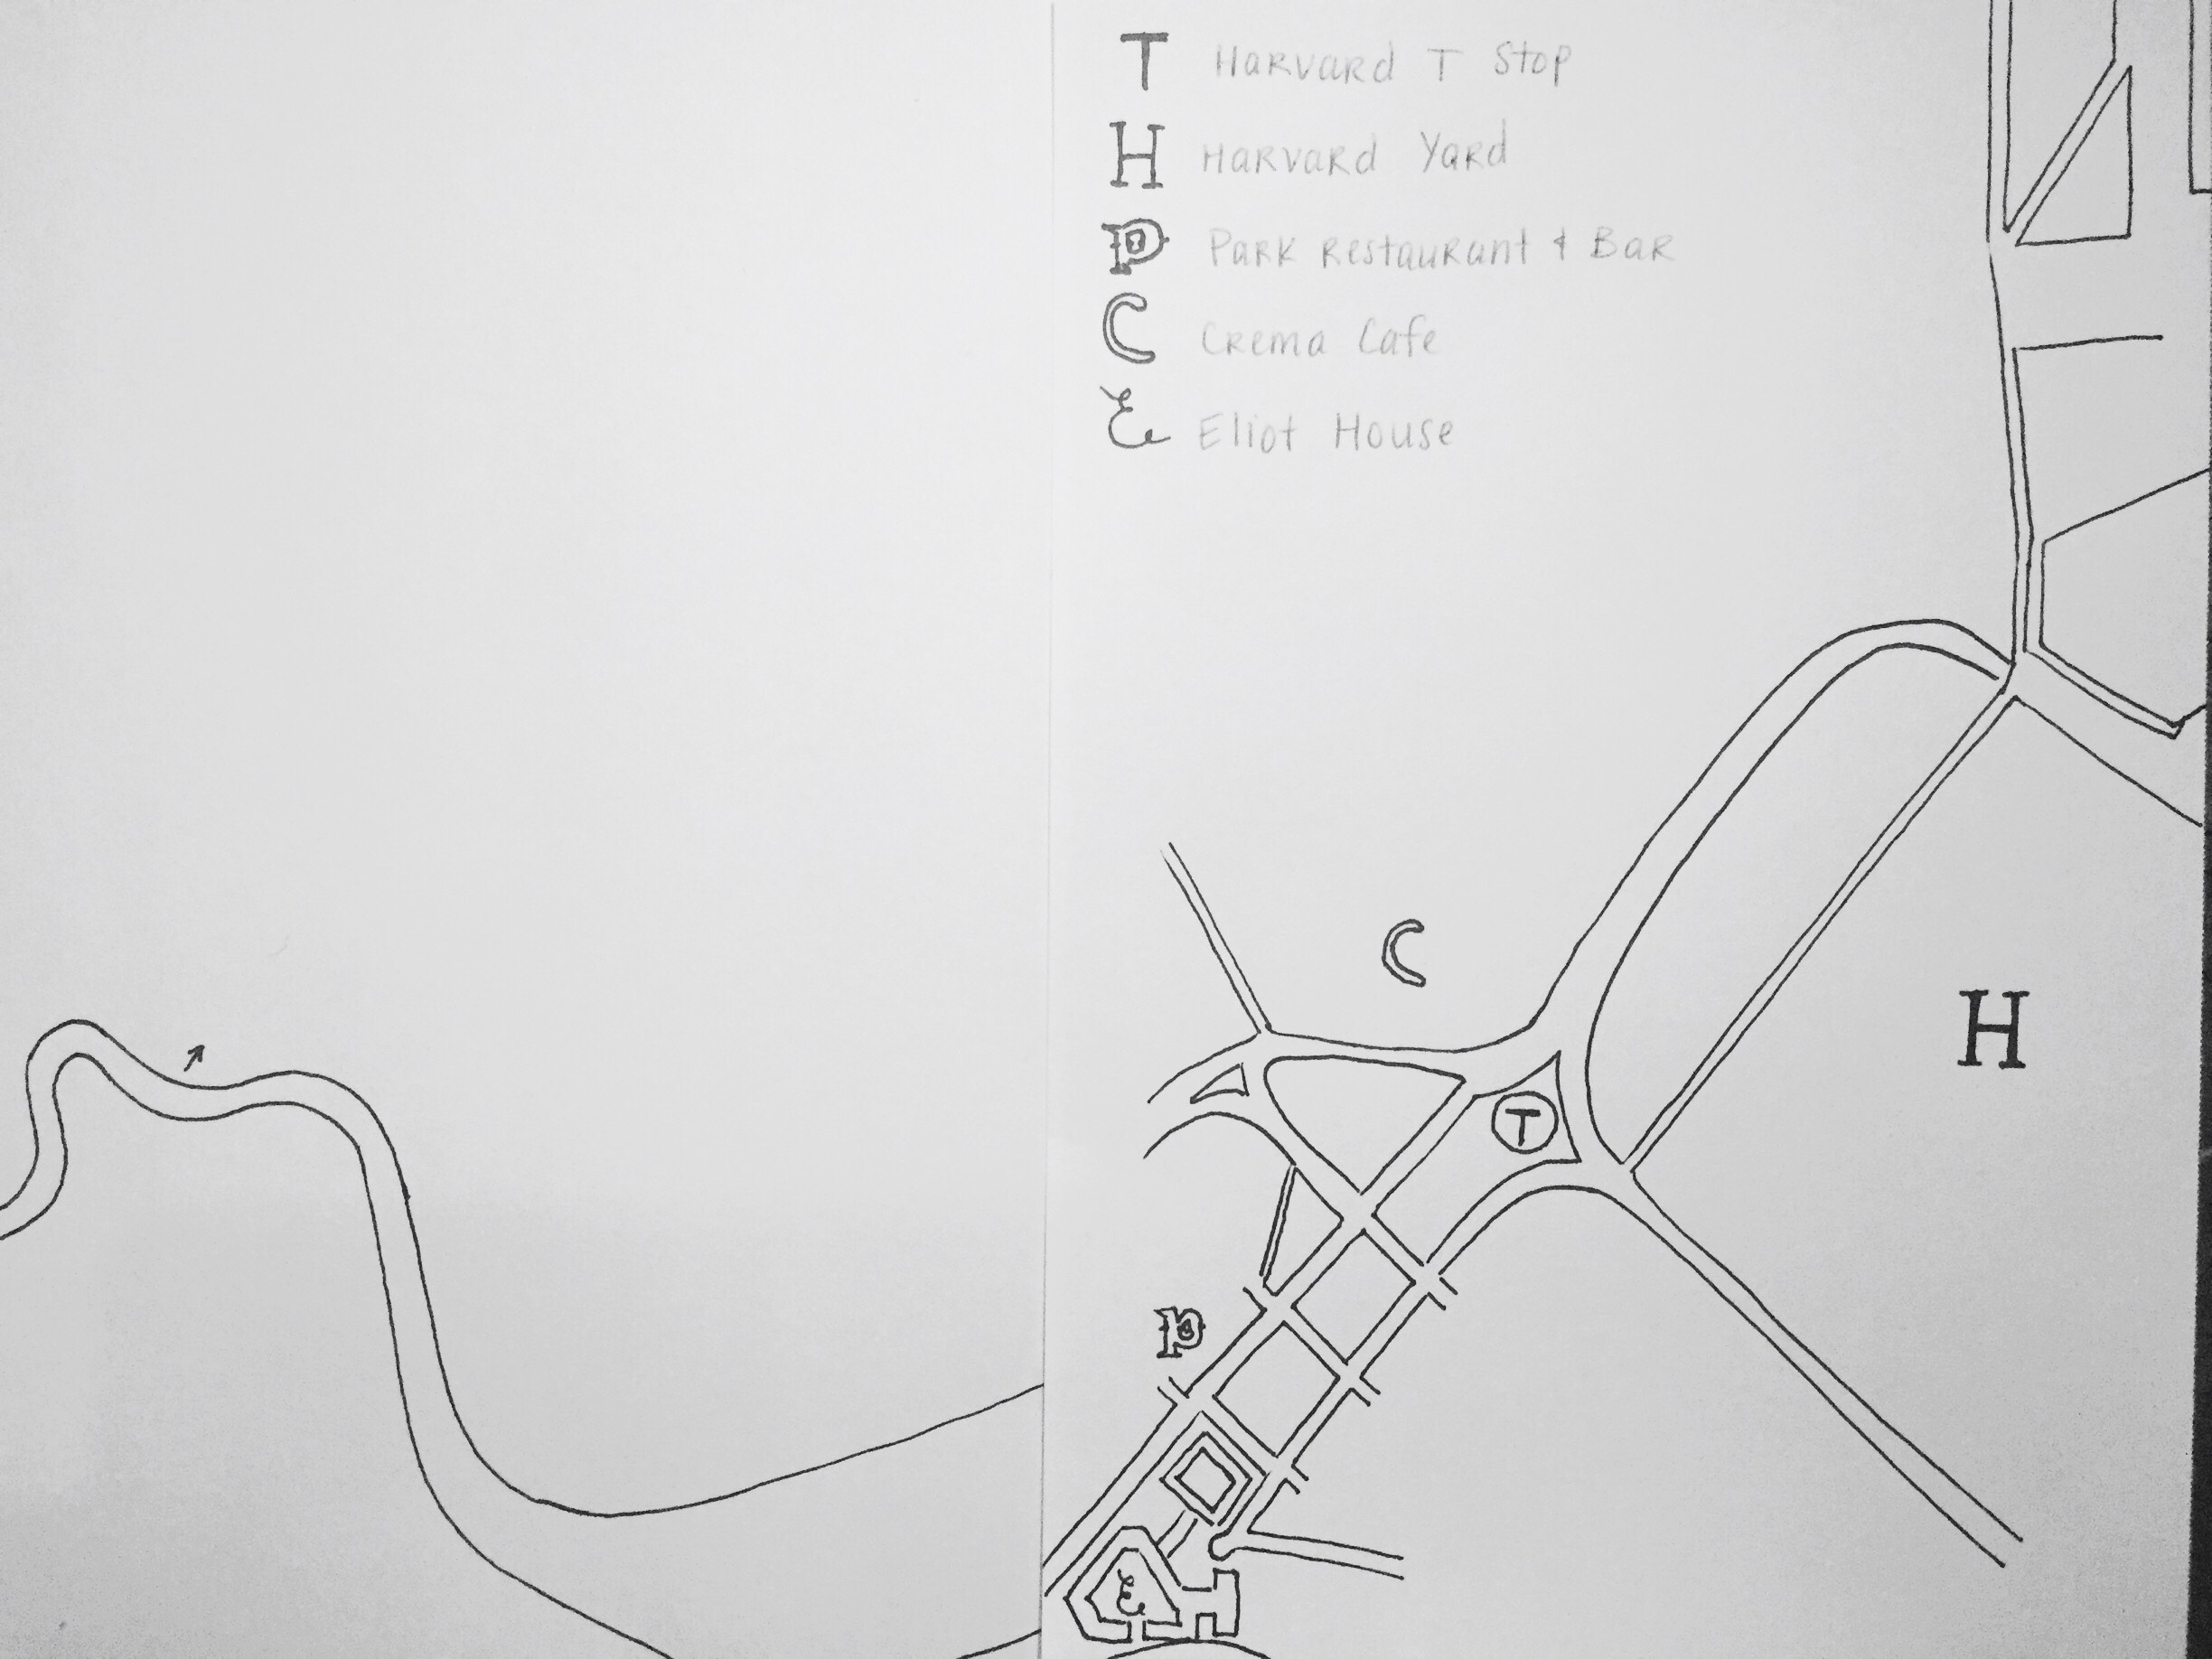 T Harvard T Stop
H Harvard Yard
P Park Restaurant & Bar
C Crema Cafe
E Eliot House
C
H
T
P
E